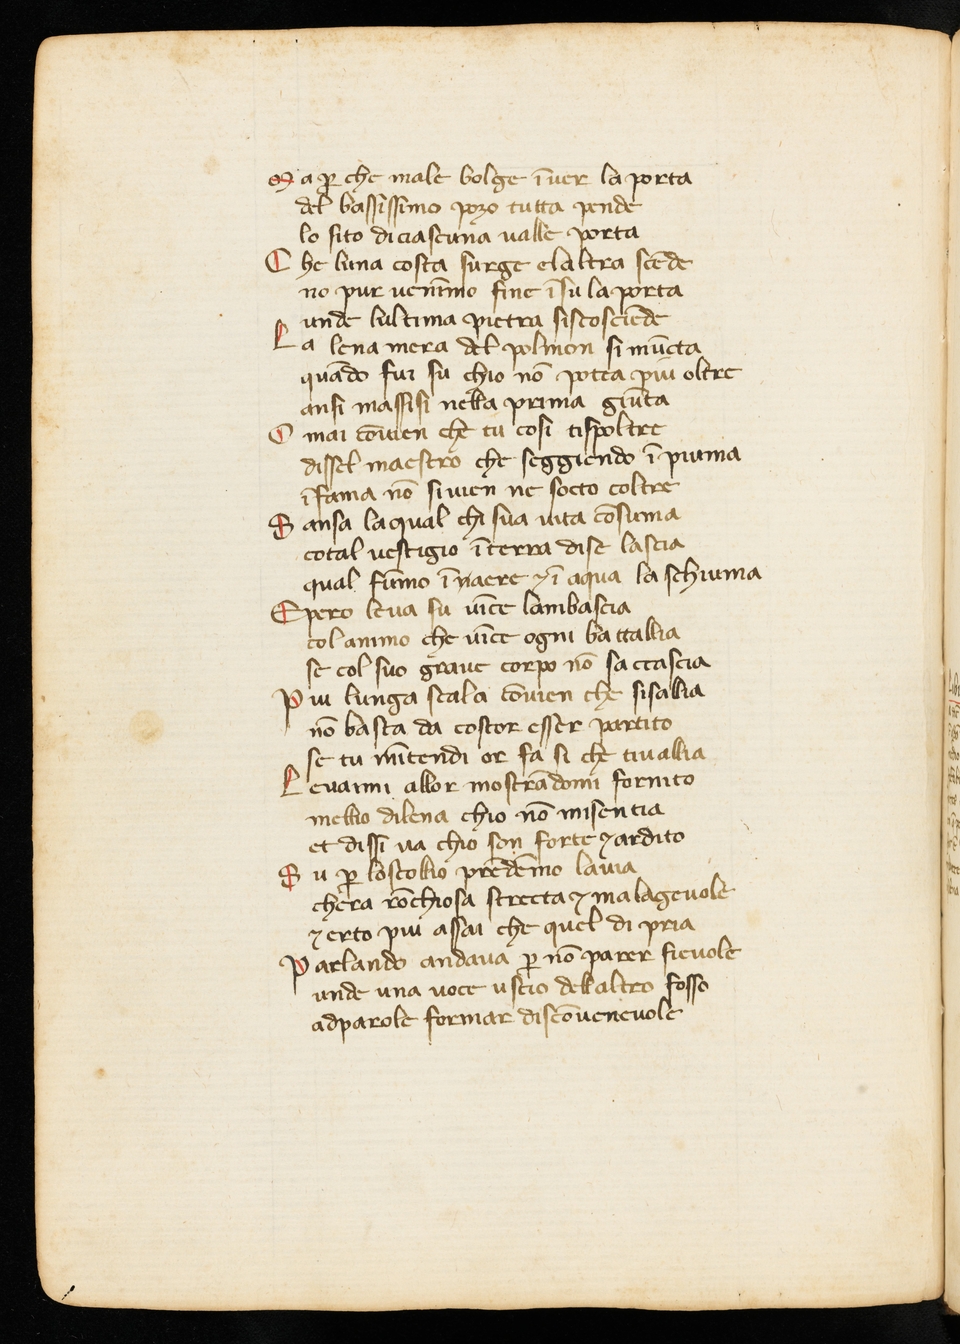 Ma ꝑ che male bolge ĩuer la porta
del bassissimo pozo tutta pende
lo sito diciascuna ualle porta
Che luna costa surge elaltra scẽde
no pur uenĩmo fine ĩsu la porta
unde lultima pietra siscosciẽde
La lena mera del polmon si mũcta
quãdo fui su chio nõ potea piu oltre
ansi massisi nella prima giũta
Omai cõuien che tu cosi tispoltre
dissel maestro che seggiendo ĩ piuma
ĩ fama nõ siuien ne socto coltre
Sansa laqual chi sua uita cõsuma
cotal uestigio ĩ terra dise lascia
qual fũmo ĩ naere ⁊ ĩ aqua la schiuma
Epero leua su uĩce lambascia
col animo che uĩce ogni battallia
se col suo graue corpo nõ saccascia
Piu lunga scala cõuien che sisallia
nõ basta da costor esser partito
se tu mĩtendi or fa si che tiuallia
Leuaimi allor mostrãdomi fornito
mellio dilena chio nõ misentia
et dissi ua chio son forte ⁊ ardito
Su ꝑ loscollio prẽdẽmo lauia
chera rõchiosa strecta ⁊ malageuole
⁊ erto piu assai che quel di pria
Parlando andaua ꝑ nõ parer fieuole
unde una uoce uscio dellaltro fosso
adparole formar discõueneuole